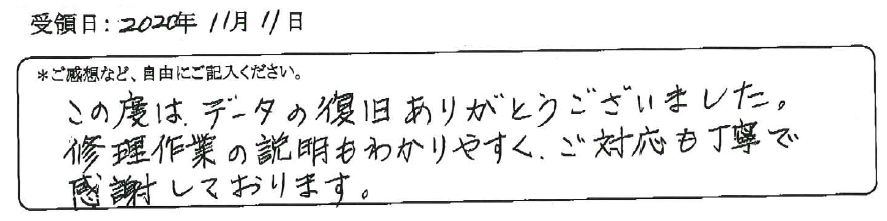 受領日：2020年 11月 11日
＊ご感想など、自由にご記入ください。
この度は、データの復旧ありがとうございました。
修理作業の説明もわかりやすく、ご対応も丁寧で
感謝しております。